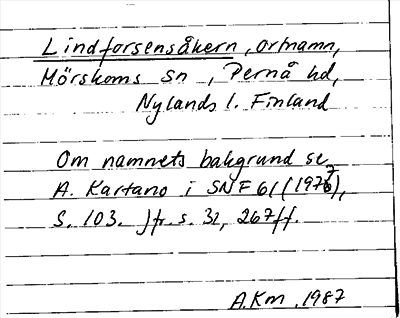 Lindforsensåkern, ortnamn,
Mörskoms sn, Pernå hd,
Nylands l. Finland
Om namnets bakgrund se
A. Kartano i SNF 61 (1976),
S. 103. Jfr s. 32, 267ff.
A.Km, 1987